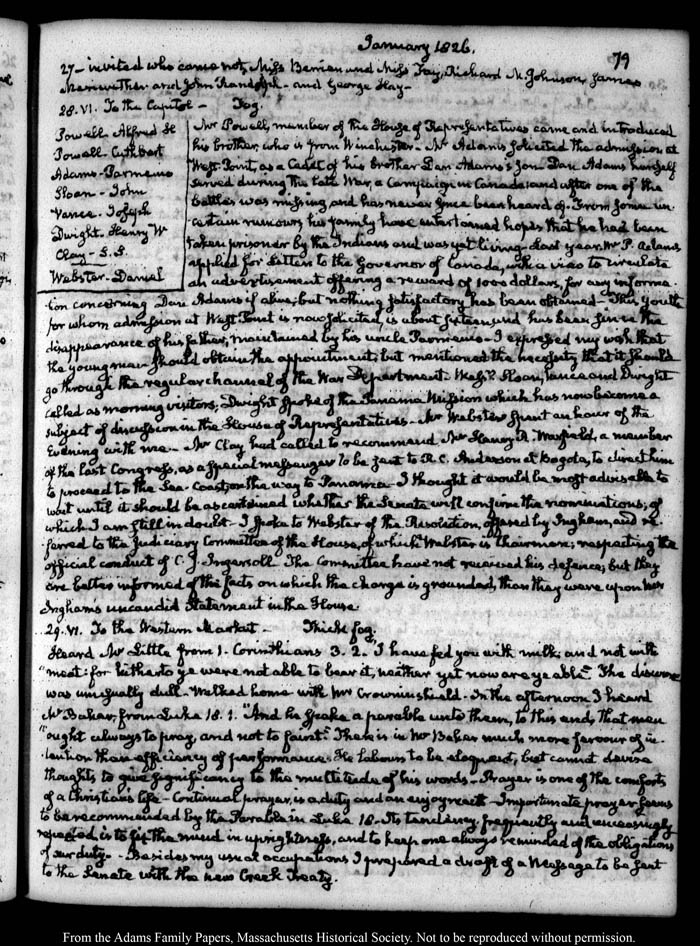 January 1826.
79
27— invited who came not, Miss Berrien and Miss Fay, Richard M. Johnson, James
Meriwether and John Randolph — and George Hay —
28. VI. To the Capitol — Fog.
Powell Alfred H
Powell Cuthbert
Adams Parmenio
Sloan — John
Vance. Joseph
Dwight. Henry W
Clay — H.
Webster. Daniel
Mr Powell, member of the House of Representatives came and introduced
his brother, who is from Winchester. Mr Adams solicited the admission at
West Point, as a Cadet, of his brother Dan Adams's Son. Dan Adams himself
served during the late War, a Campaign in Canada; and after one of the
battles was missing and has never since been heard of. From some un-
certain rumours, his family have entertained hopes that he had been
taken prisoner by the Indians and was yet living. Last year, Mr P. Adams
applied for Letters to the Governor of Canada, with a view to circulate
an advertisement offering a reward of 1000 dollars, for any informa-
tion concerning Dan Adams if alive, but nothing satisfactory has been obtained — This youth
for whom admission at West Point is now solicited, is about sixteen, and has been since the
disappearance of his father, maintained by his uncle Parmenio — I expressed my wish that
the young man should obtain the appointment, but mentioned the necessity that it should
go through the regular channel of the War Department. Messrs Sloan, Vance and Dwight
called as morning visitors; Dwight spoke of the Panama Mission which has now become a
subject of discussion in the House of Representatives — Mr Webster spent an hour of the
Evening with me — Mr Clay had called to recommend Mr Henry R. Warfield, a member
of the last Congress, as a special messenger to be sent to R. C. Anderson at Bogota, to direct him
to proceed to the Sea-Coast, on the way to Panama — I thought it would be most advisable to
wait until it should be ascertained whether the Senate will confirm the nominations; of
which I am still in doubt — I spoke to Webster of the Resolution, offered by Ingham, and re-
ferred to the Judiciary Committee of the House, of which Webster is Chairman; respecting the
official conduct of C. J. Ingersoll. The Committee have not received his defence; but they
are better informed of the facts on which the charge is grounded, than they were upon
Ingham's uncandid Statement in the House
29. VI. To the Western Market — Thick fog.
Heard Mr Little from 1. Corinthians 3. 2. I have fed you with milk and not with
"meat: for hitherto ye were not able to bear it, neither yet now are ye able." The discourse
was unusually dull. Walked home with Mr Crowninshield. In the afternoon I heard
Mr Baker, from Luke 18. 1. "And he spake a parable unto them, to this end, that men
"ought always to pray, and not to faint." There is in Mr Baker much more fervour of in-
tention than efficiency of performance. He labours to be eloquent, but cannot devise
thoughts to give significancy to the multitude of his words. Prayer is one of the comforts
of a Christian's life — Continual prayer, is a duty and an enjoyment — Importunate prayer seems
to be recommended by the Parable in Luke 18. Its tendency, frequently and unceasingly
repeated, is to fix the mind in uprightness, and to keep one always reminded of the obligations
of our duty — Besides my usual occupations I prepared a draft of a Message to be sent
to the Senate with the new Creek Treaty.
From the Adams Family Papers, Massachusetts Historical Society. Not to be reproduced without permission.